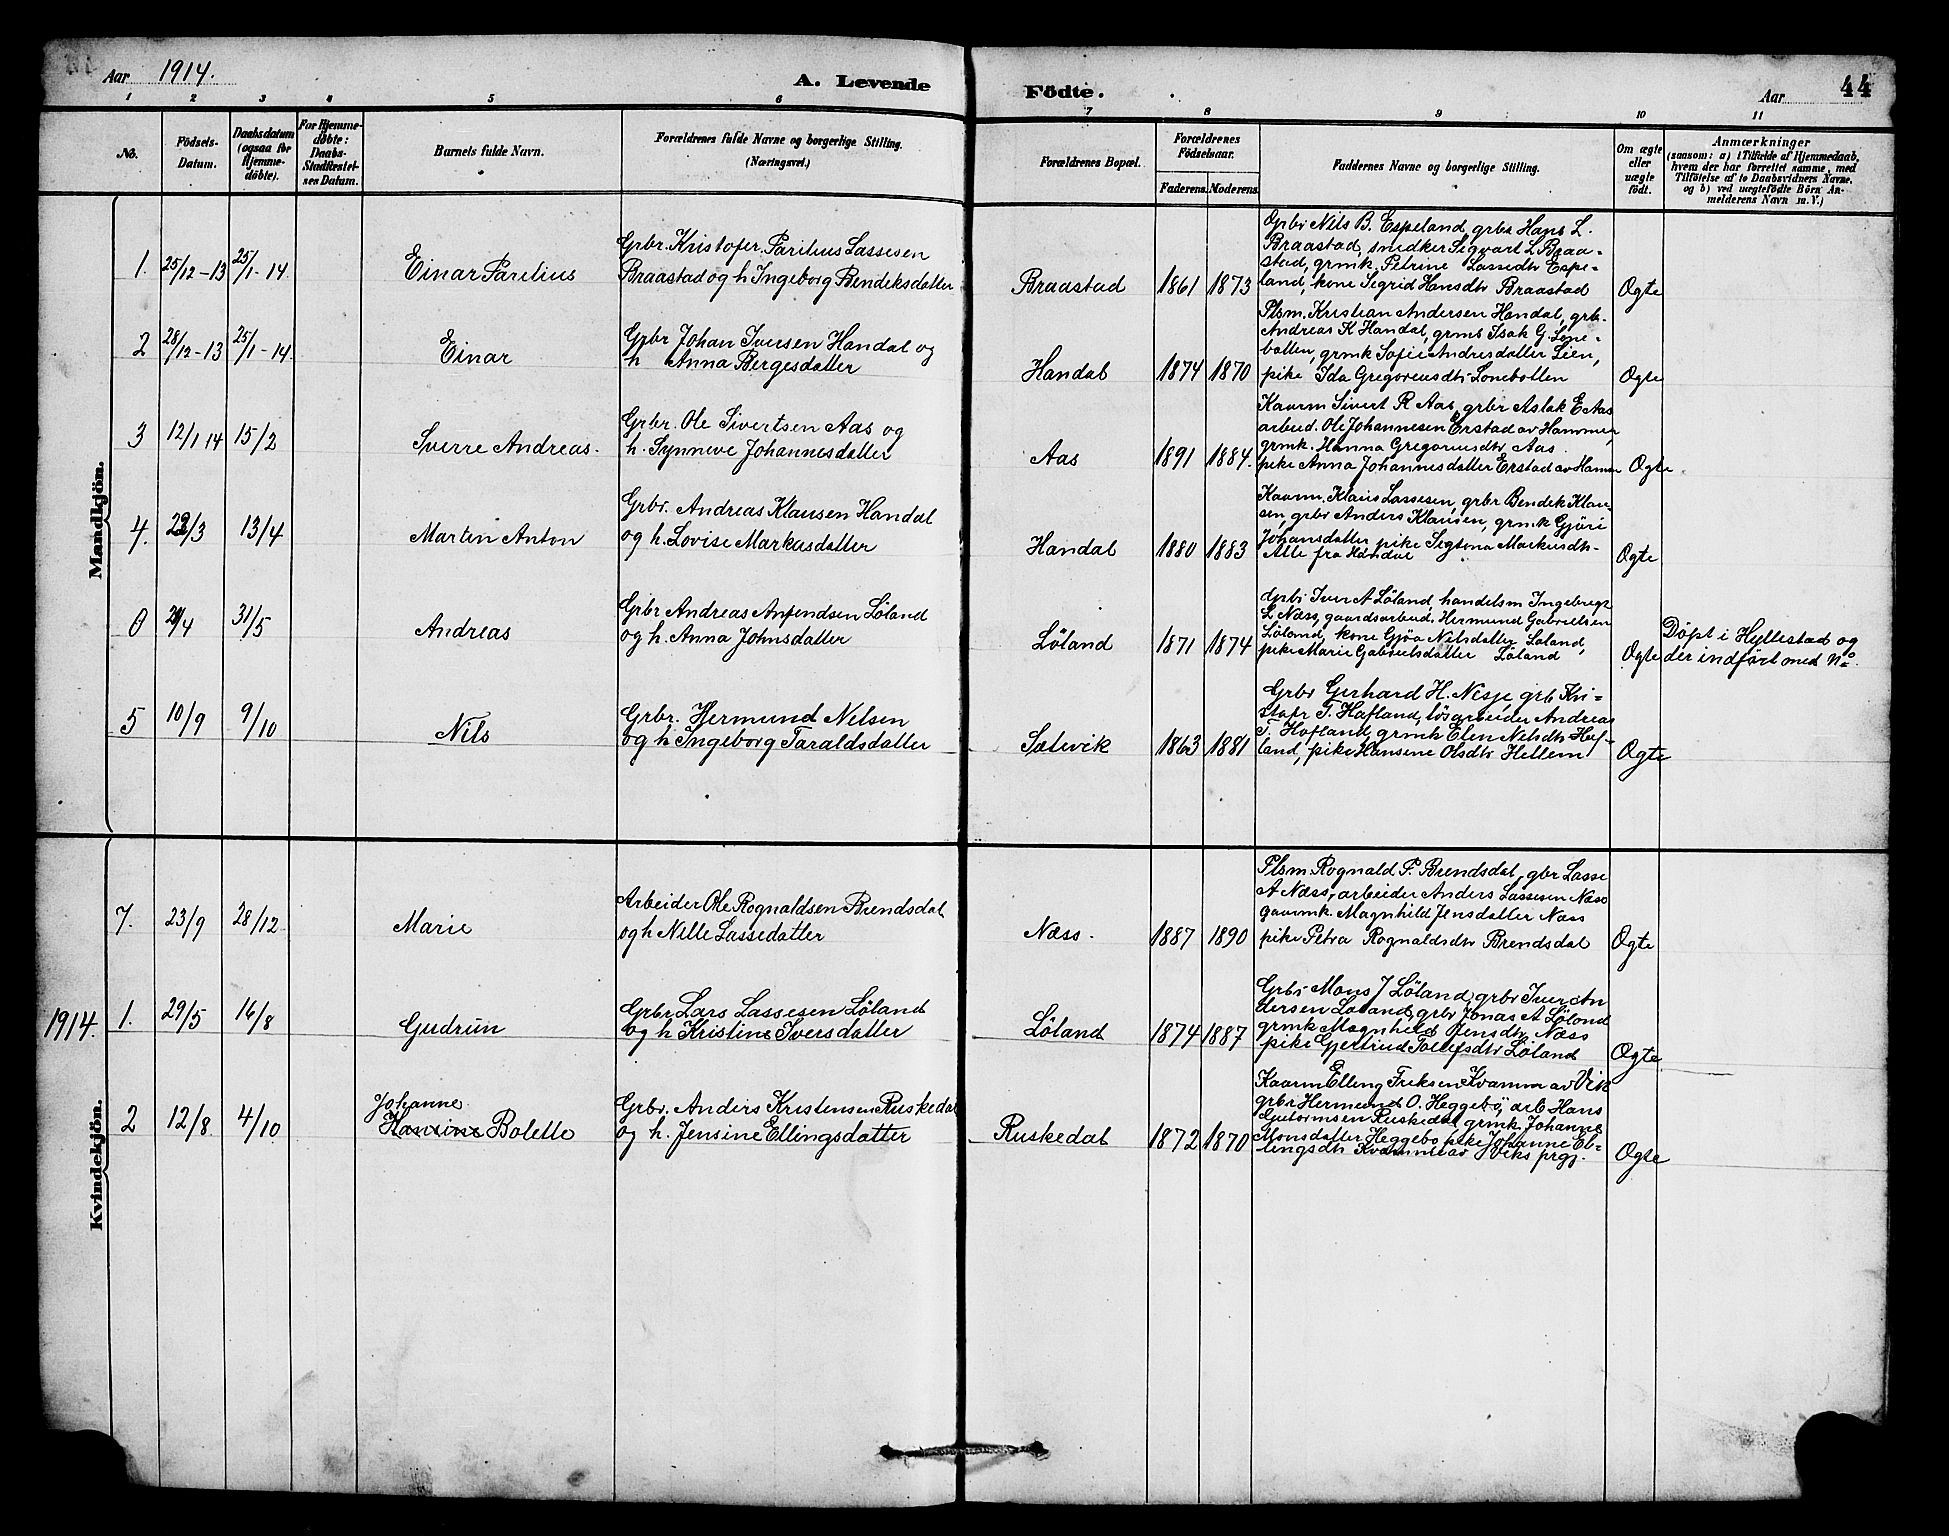 Aar 1914. A. Levende Födte. Aar 44
1 2 3 4 5 6 7 8 9 10 11
No.
Födsels-
Datum.
Daabsdatum
(ogsaa for
Hjemme-
döbte).
For Hjemme-
döbte:
Daabs-
Stadfæstel-
ses Datum.
Barnets fulde Navn.
Forældrenes fulde Navne og borgerlige Stilling.
(Næringsvei.)
Forældrenes Bopæl.
Forældrenes
Födselsaar.
Faderens. Moderens.
Faddernes Navne og borgerlige Stilling.
Om ægte
eller
uægte
födt.
Anmærkninger
(saasom: a) i Tilfælde af Hjemmedaab,
hvem der har forrettet samme, med
Tilföielse af to Daabsvidners Navne.
og b) ved uægtefödte Börn An-
melderens Navn m. V.)
Mandkjön.
1. 25/12-13 25/1-14
Einar Parelius
Grbr. Kristofer Parilius Lassesen
Braastad og h Ingeborg Bendeksdatter
Braastad 1861 1873
Grbr Nils B. Espeland, grbr Hans L.
Braastad, snedker Sigvart L Braa-
stad, grmk. Petrine Lassedtr Espe-
land, kone Sigrid Hansdtr Braastad
Ægte
2 28/12-13 25/1-14
Einar
Grbr Johan Iversen Handal og
h Anna Bergesdatter
Handal 1874 1870
Plsm. Kristian Andersen Handal, grb.
Andreas K Handal, grmb Isak G. Lone-
botten, grmk Sofie Andresdatter Lien,
pike Ida Gregoriusdtr Lonebotten
Ægte
3 12/1 14 15/2
Sverre Andreas.
Grbr. Ole Sivertsen Aas og
h. Synneve Johannesdatter
Aas 1891 1884.
Kaarm Sivert R Aas, grbr Aslak E Aas
arbeid. Ole Johannesen Erstad av Hammer,
grmk. Hanna Gregoriusdtr Aas
pike Anna Johannesdatter Erstad av Hamm
Ægte
4. 23/3 13/4
Martin Anton
Grbr. Andreas Klausen Handal
og h. Lovise Markusdatter
Handal 1880 1883
Kaarm. Klaus Lassesen, grbr Bendek Klau-
sen, grbr Anders Klausen, grmk Gjöri
Johansdatter pike Sigtona Markusdtr
Alle fra Handal
Ægte
0 2/4 31/5
Andreas
Grbr Andreas Anfendsen Löland
og h. Anna Johnsdatter
Löland 1871 1874
Grbr Iver A Löland, handelsm Ingebregt
L Næss, gaardsarbeid. Hermund Gabrielsen
Löland, kone Gjöa Nilsdatter Löland,
pike Marie Gabrielsdatter Löland
Ægte
Döpt i Hyllestad og
der indfört med No.
5 10/9 9/10
Nils
Grbr. Hermund Nelsen
og h Ingeborg Taraldsdatter
Sælevik 1863 1881
Grbr Gerhard H. Nesje, grb Kri-
stofr T. Hafland, lösarbeider Andreas
T. Hafland, grmk Elen Nelsdtr Haf-
land, pike Hansine Olsdtr Hellem
Ægte
Kvindekjön.
7. 23/9 28/12
Marie
Arbeider Ole Rognaldsen Brendsdal
og h Nille Lassedatter
Næss. 1887 1890
Plsm. Rognald P. Brendsdal, gbr Lasse
A Næss, arbeider Anders Lassesen Næss
gaarmk. Magnhild Jensdatter Næss
pike Petra Rognaldsdtr Brendsdal
Ægte
1914. 1. 29/5 16/8
Gudrun
Grbr Lars Lassesen Löland
og h Kristine Iversdatter
Löland 1874 1887
Grbr Mons J Löland, grbr Iver An
dersen Löland, grbr Jonas A Löland
grmk Magnhild Jensdtr Næss
pike Gjertrud Tollefsdtr Löland
Ægte
2 12/8 4/10
Johanne
Hansine Bolette
Grbr. Anders Kristensen Ruskedal
og h. Jensine Ellingsdatter
Ruskedal 1872 1870
Kaarm Elling Friksen Kvamme av Vik
grbr Hermund O. Heggebö, arb Hans
Guttormsen Ruskedal, grmk Johanne
Monsdatter Heggebo pike Johanne El-
lingsdtr Kvamme av Viks prgj.
Ægte